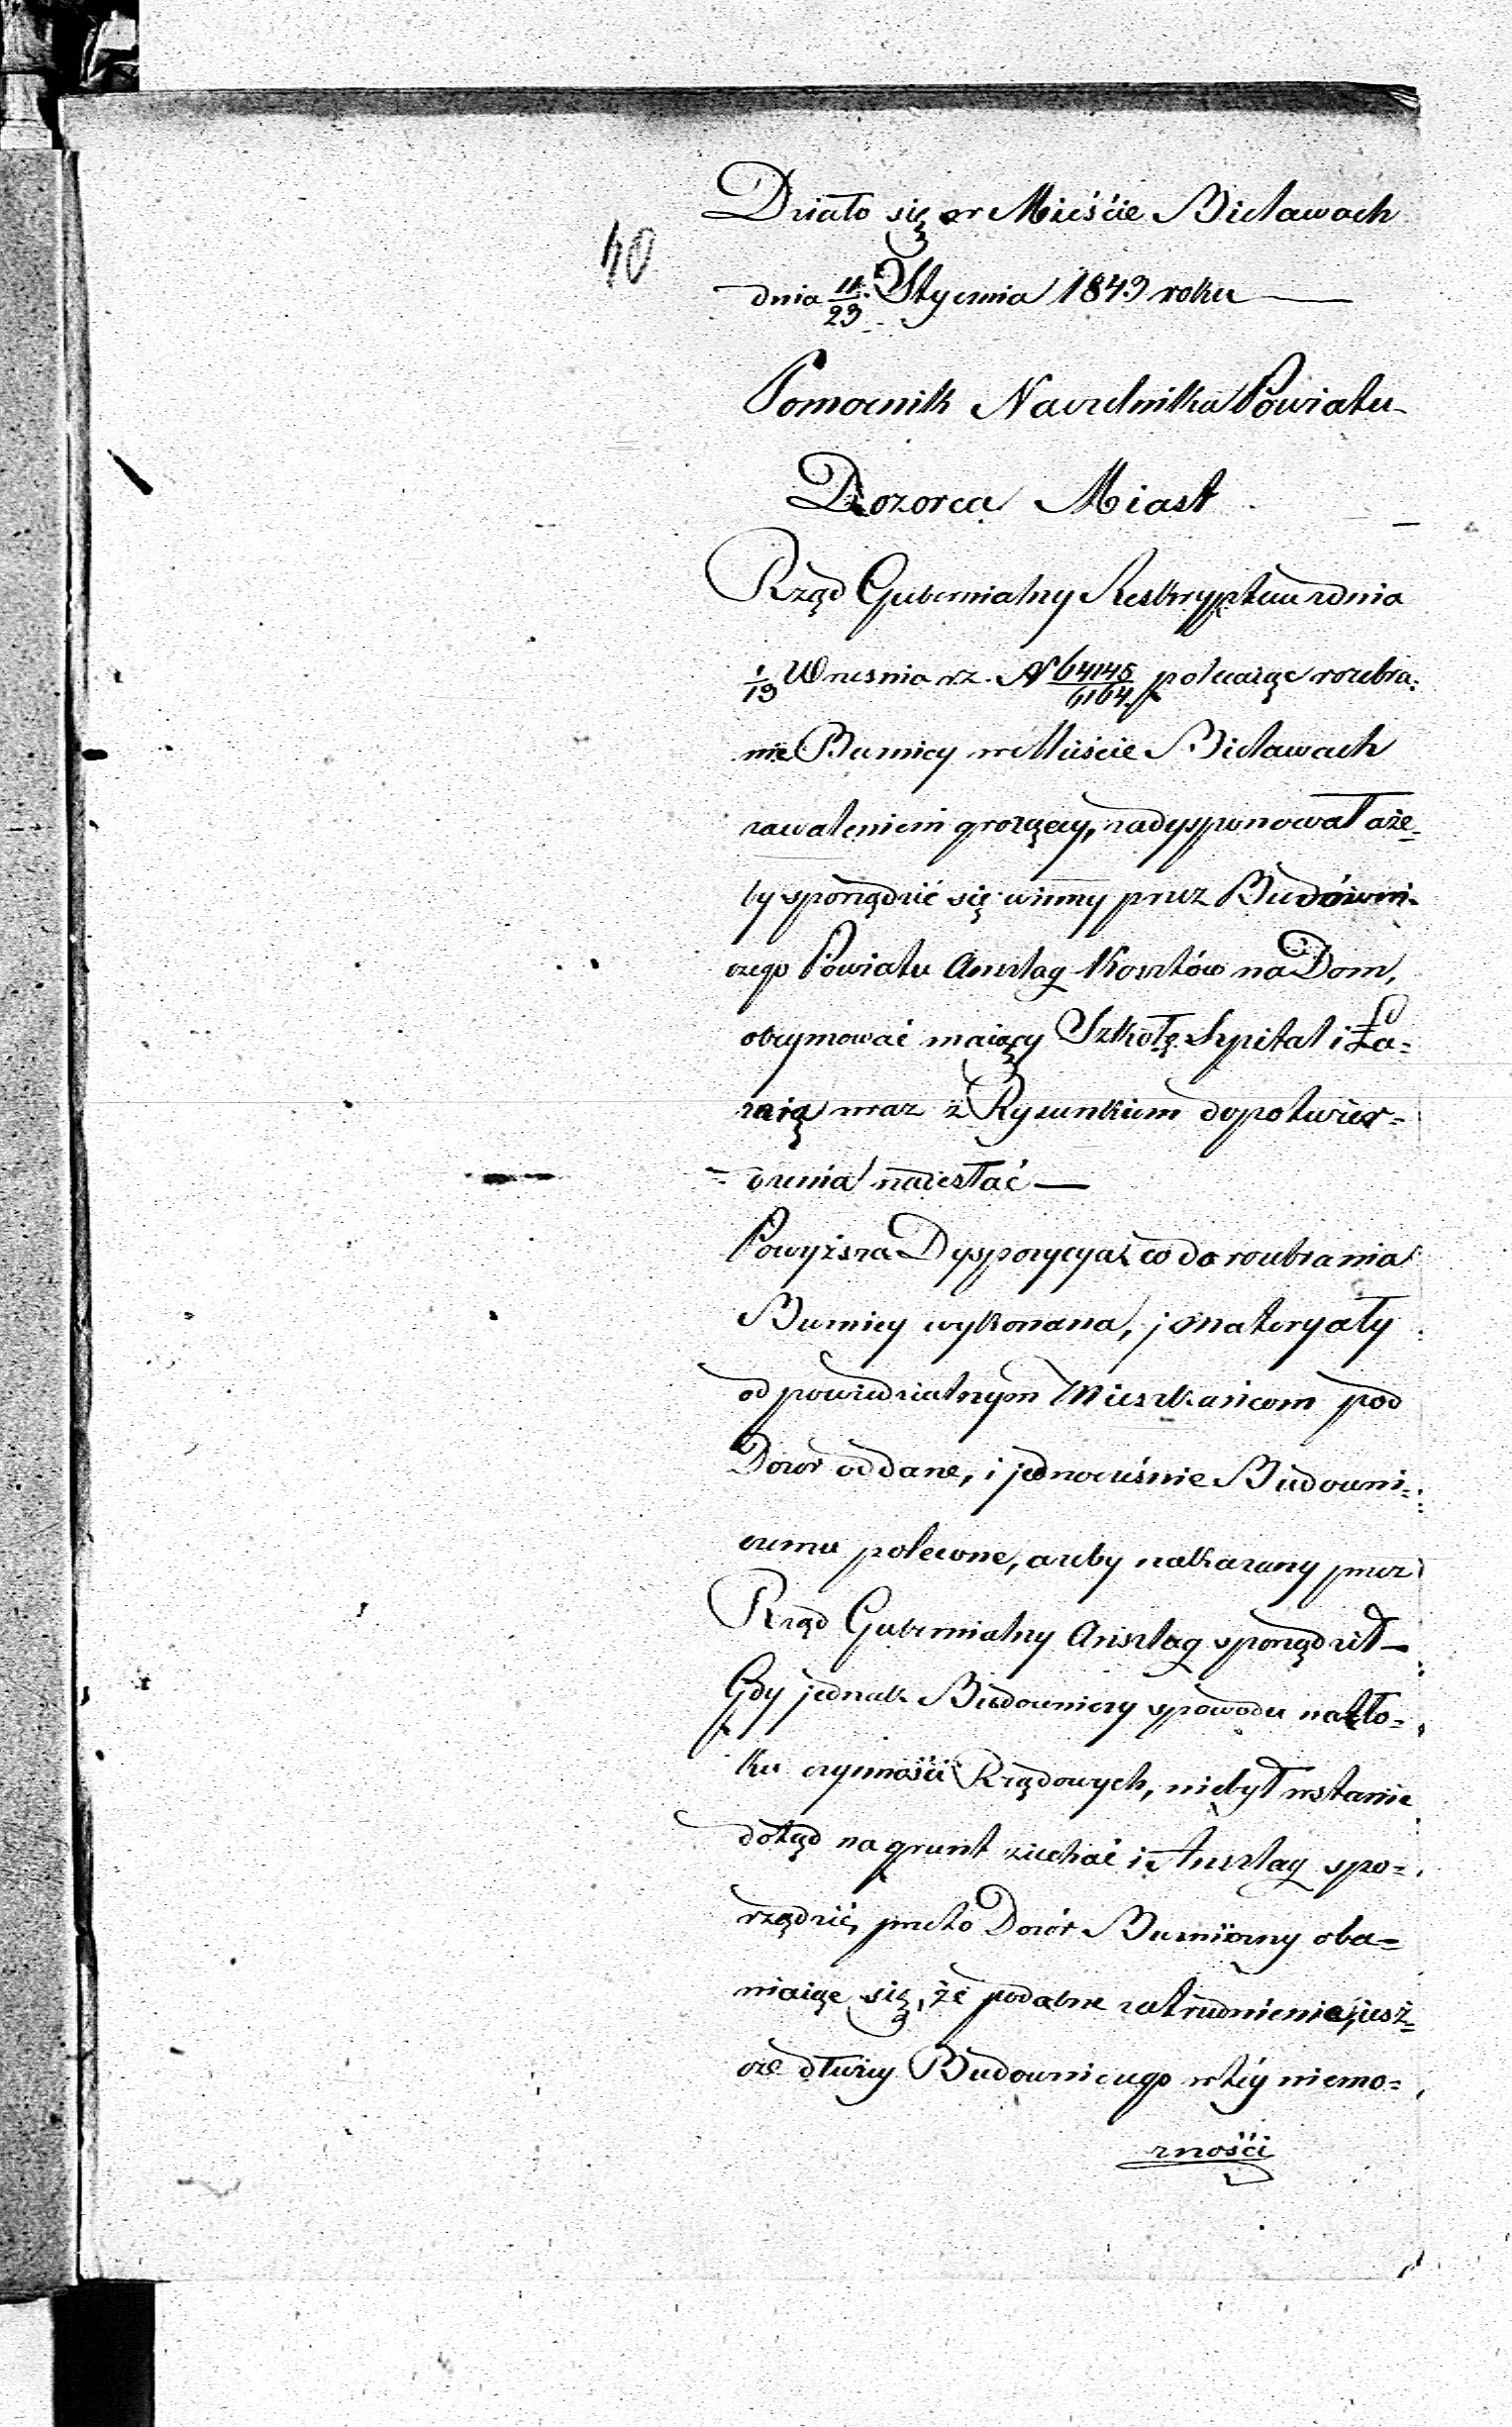 40
Działo się w Mieście Bielawach
dnia 11/23 Stycznia 1849 roku —
Pomocnik Naczelnika Powiatu
Dozorca Miast
Rząd Gubernialny Reskryptem z dnia
1/13 Wrzesnia r.z. N 64145/6164 polecaiąc rozebra:
nie Buznicy w Mieście Bielawach
zawaleniem grozącey, zadysponował aże=
by sporządzić się winny przez Budowni=
czego Powiatu Anszlag Kosztów na Dom,
obeymować maiący Szkołę Szpital i Ła=
znią wraz z Rysunkiem do potwier=
= dzenia nadesłać —
Powyższa Dyspozycya co do rozebrania
Buznicy wykonana, i Materyały
odpowiedzialnym Mieszkańcom pod
Dozór oddane, i jednocześnie Budowni=
czemu polecone, azeby nakazany przez
Rząd Gubernialny Anszlag sporządził —
Gdy jednak Budowniczy z powodu natło=
ku czynności Rządowych, niebył w stanie
dotąd na grunt ziechać i Anszlag spo=
rządzić, przeto Dozór Buzniczny oba=
wiaiąc się, że podobne zatrudnienia jesz=
cze dłużey Budowniczego w téy niemo=
żności